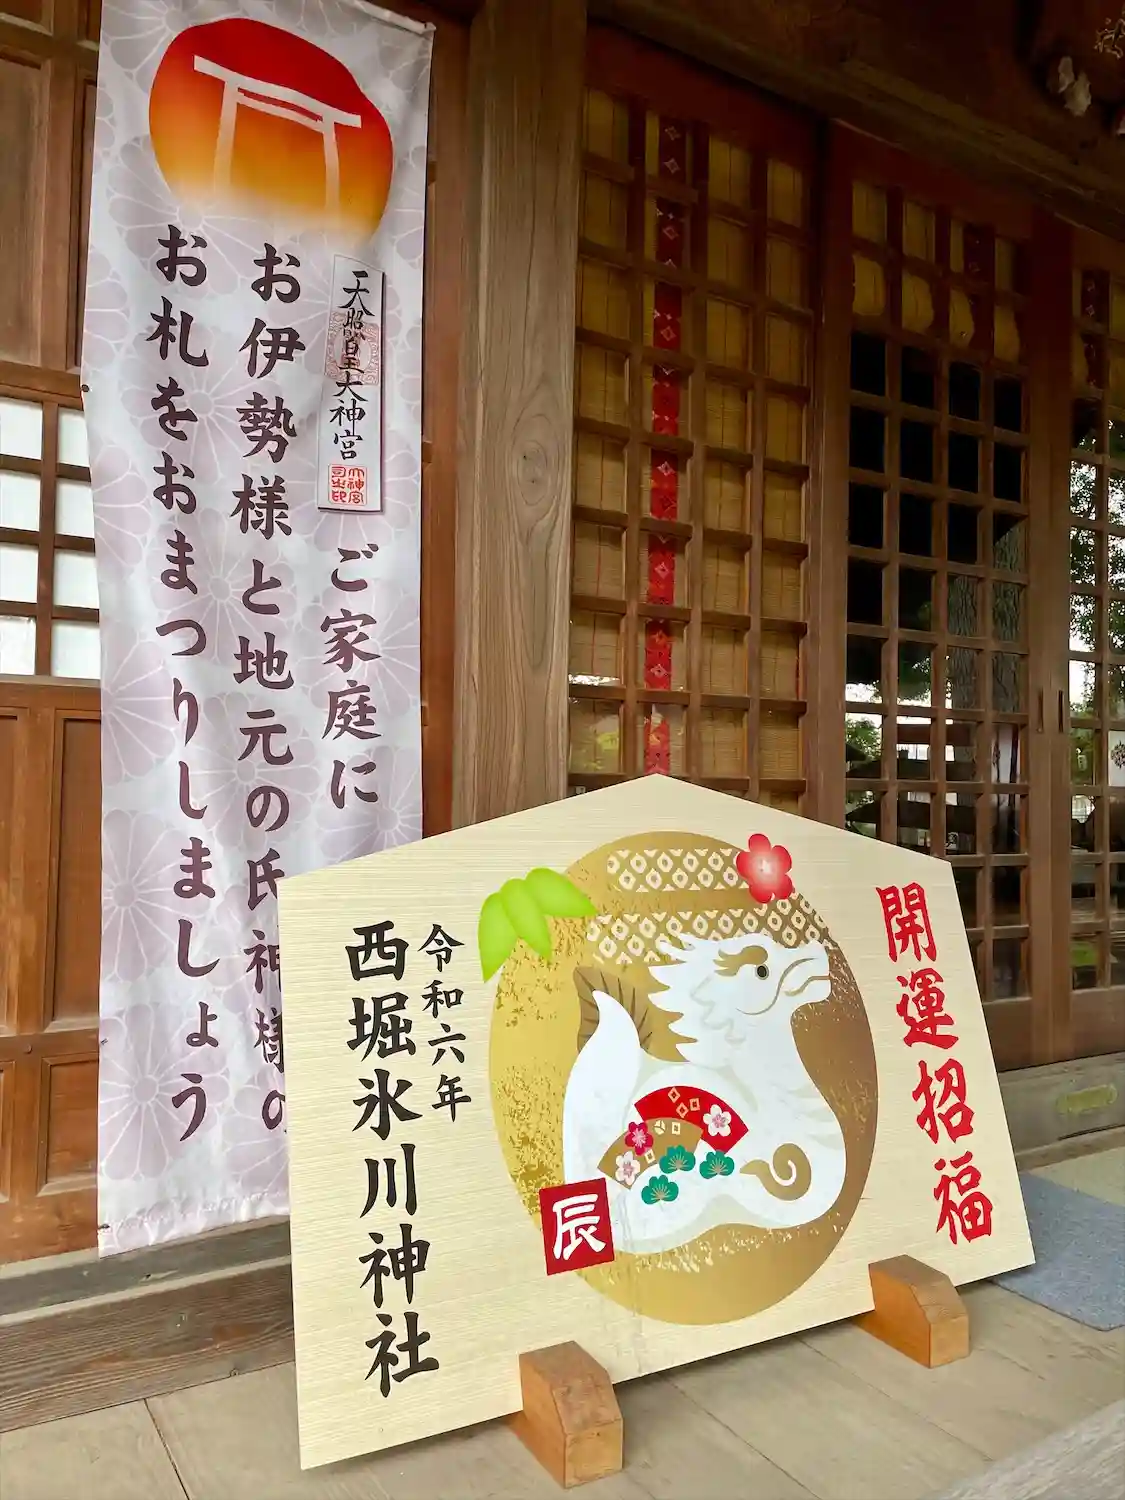 天照皇大神宮
ご家庭に
お伊勢様と地元の氏神様の
お札をおまつりしましょう
開運招福
辰
令和六年
西堀氷川神社